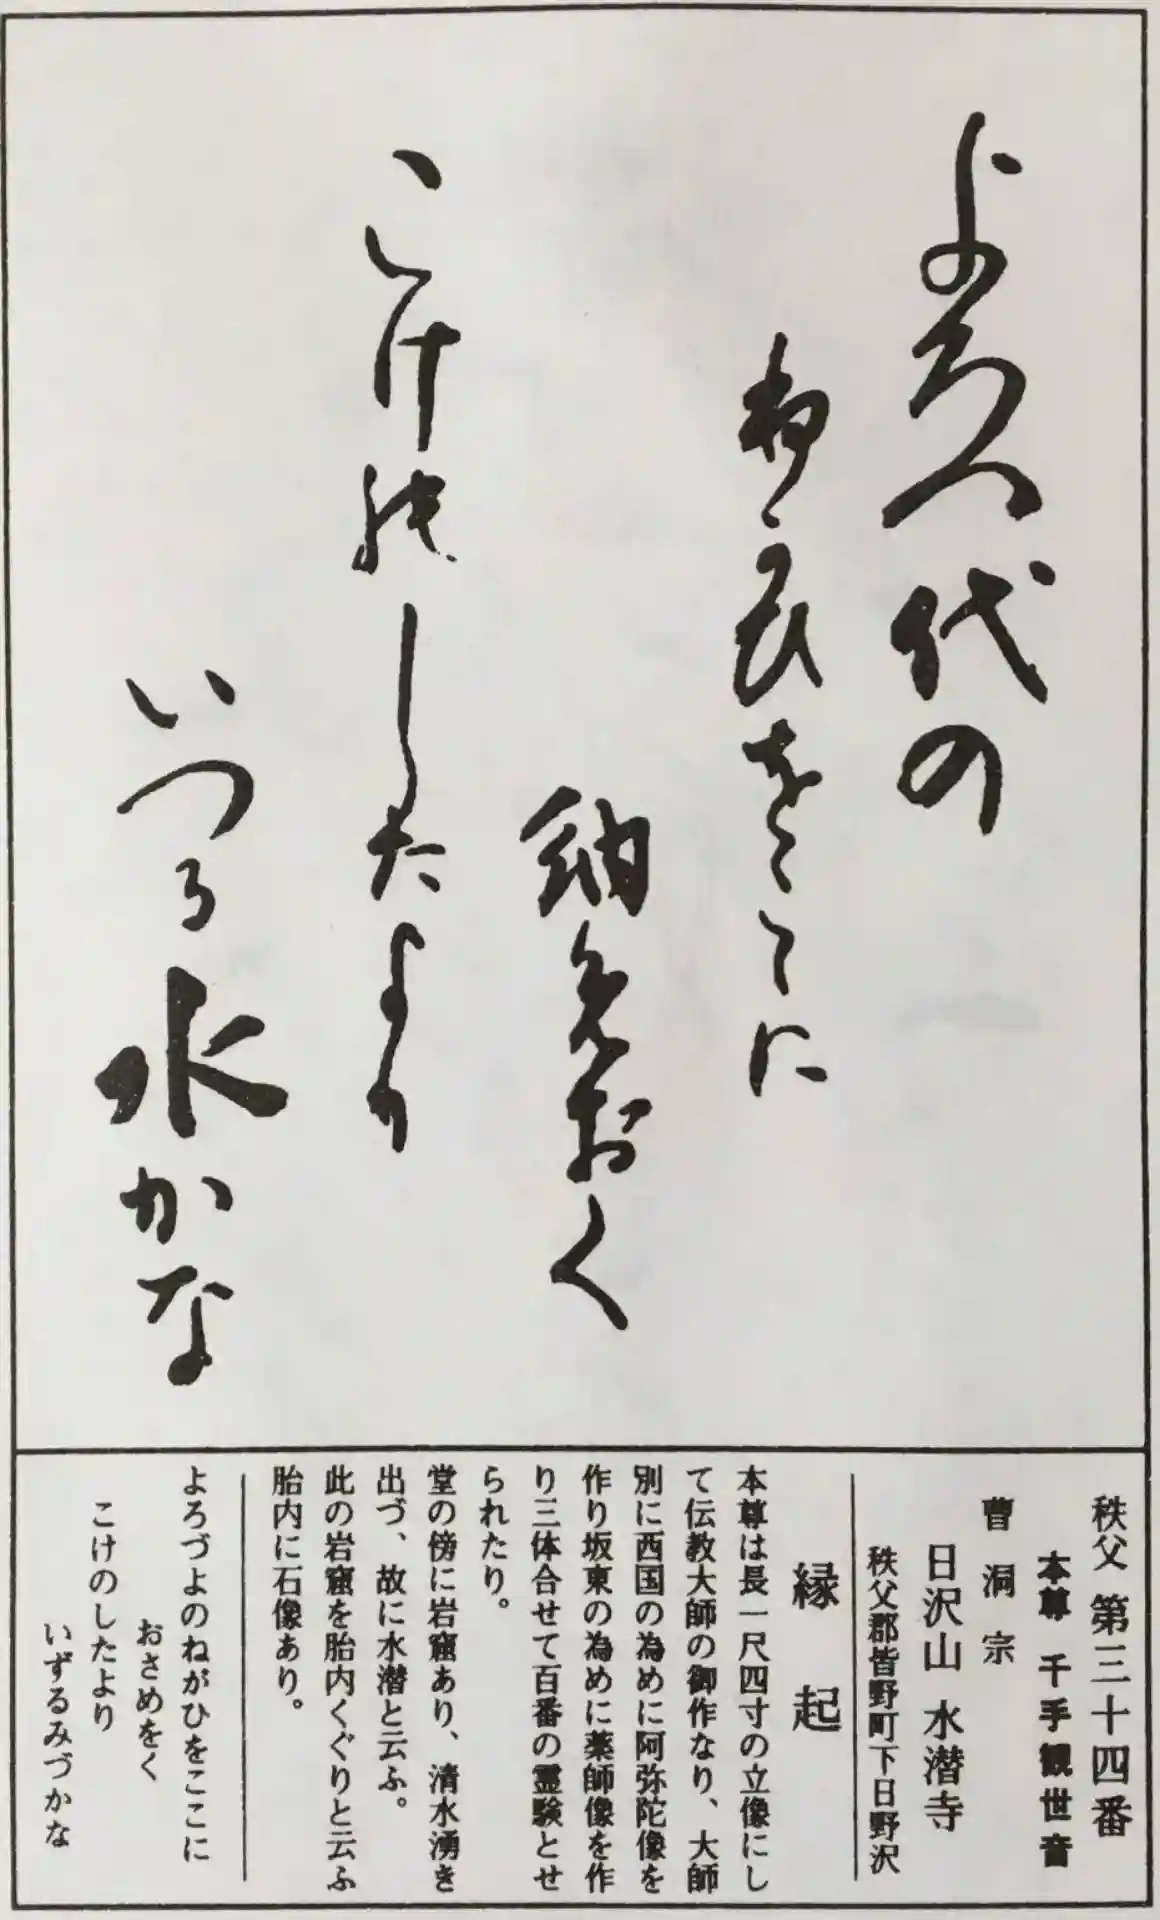 よろつ代の
ねかひをここに
納めおく
こけのしたより
いつる水かな
秩父 第三十四番
本尊 千手観世音
曹洞宗
日沢山 水潜寺
秩父郡皆野町下日野沢
縁起
本尊は長一尺四寸の立像にし
て伝教大師の御作なり、大師
別に西国の為めに阿弥陀像を
作り坂東の為めに薬師像を作
り三体合せて百番の霊験とせ
られたり。
堂の傍に岩窟あり、清水湧き
出づ、故に水潜と云ふ。
此の岩窟を胎内くぐりと云ふ
胎内に石像あり。
よろづよのねがひをここに
おさめをく
こけのしたより
いずるみづかな